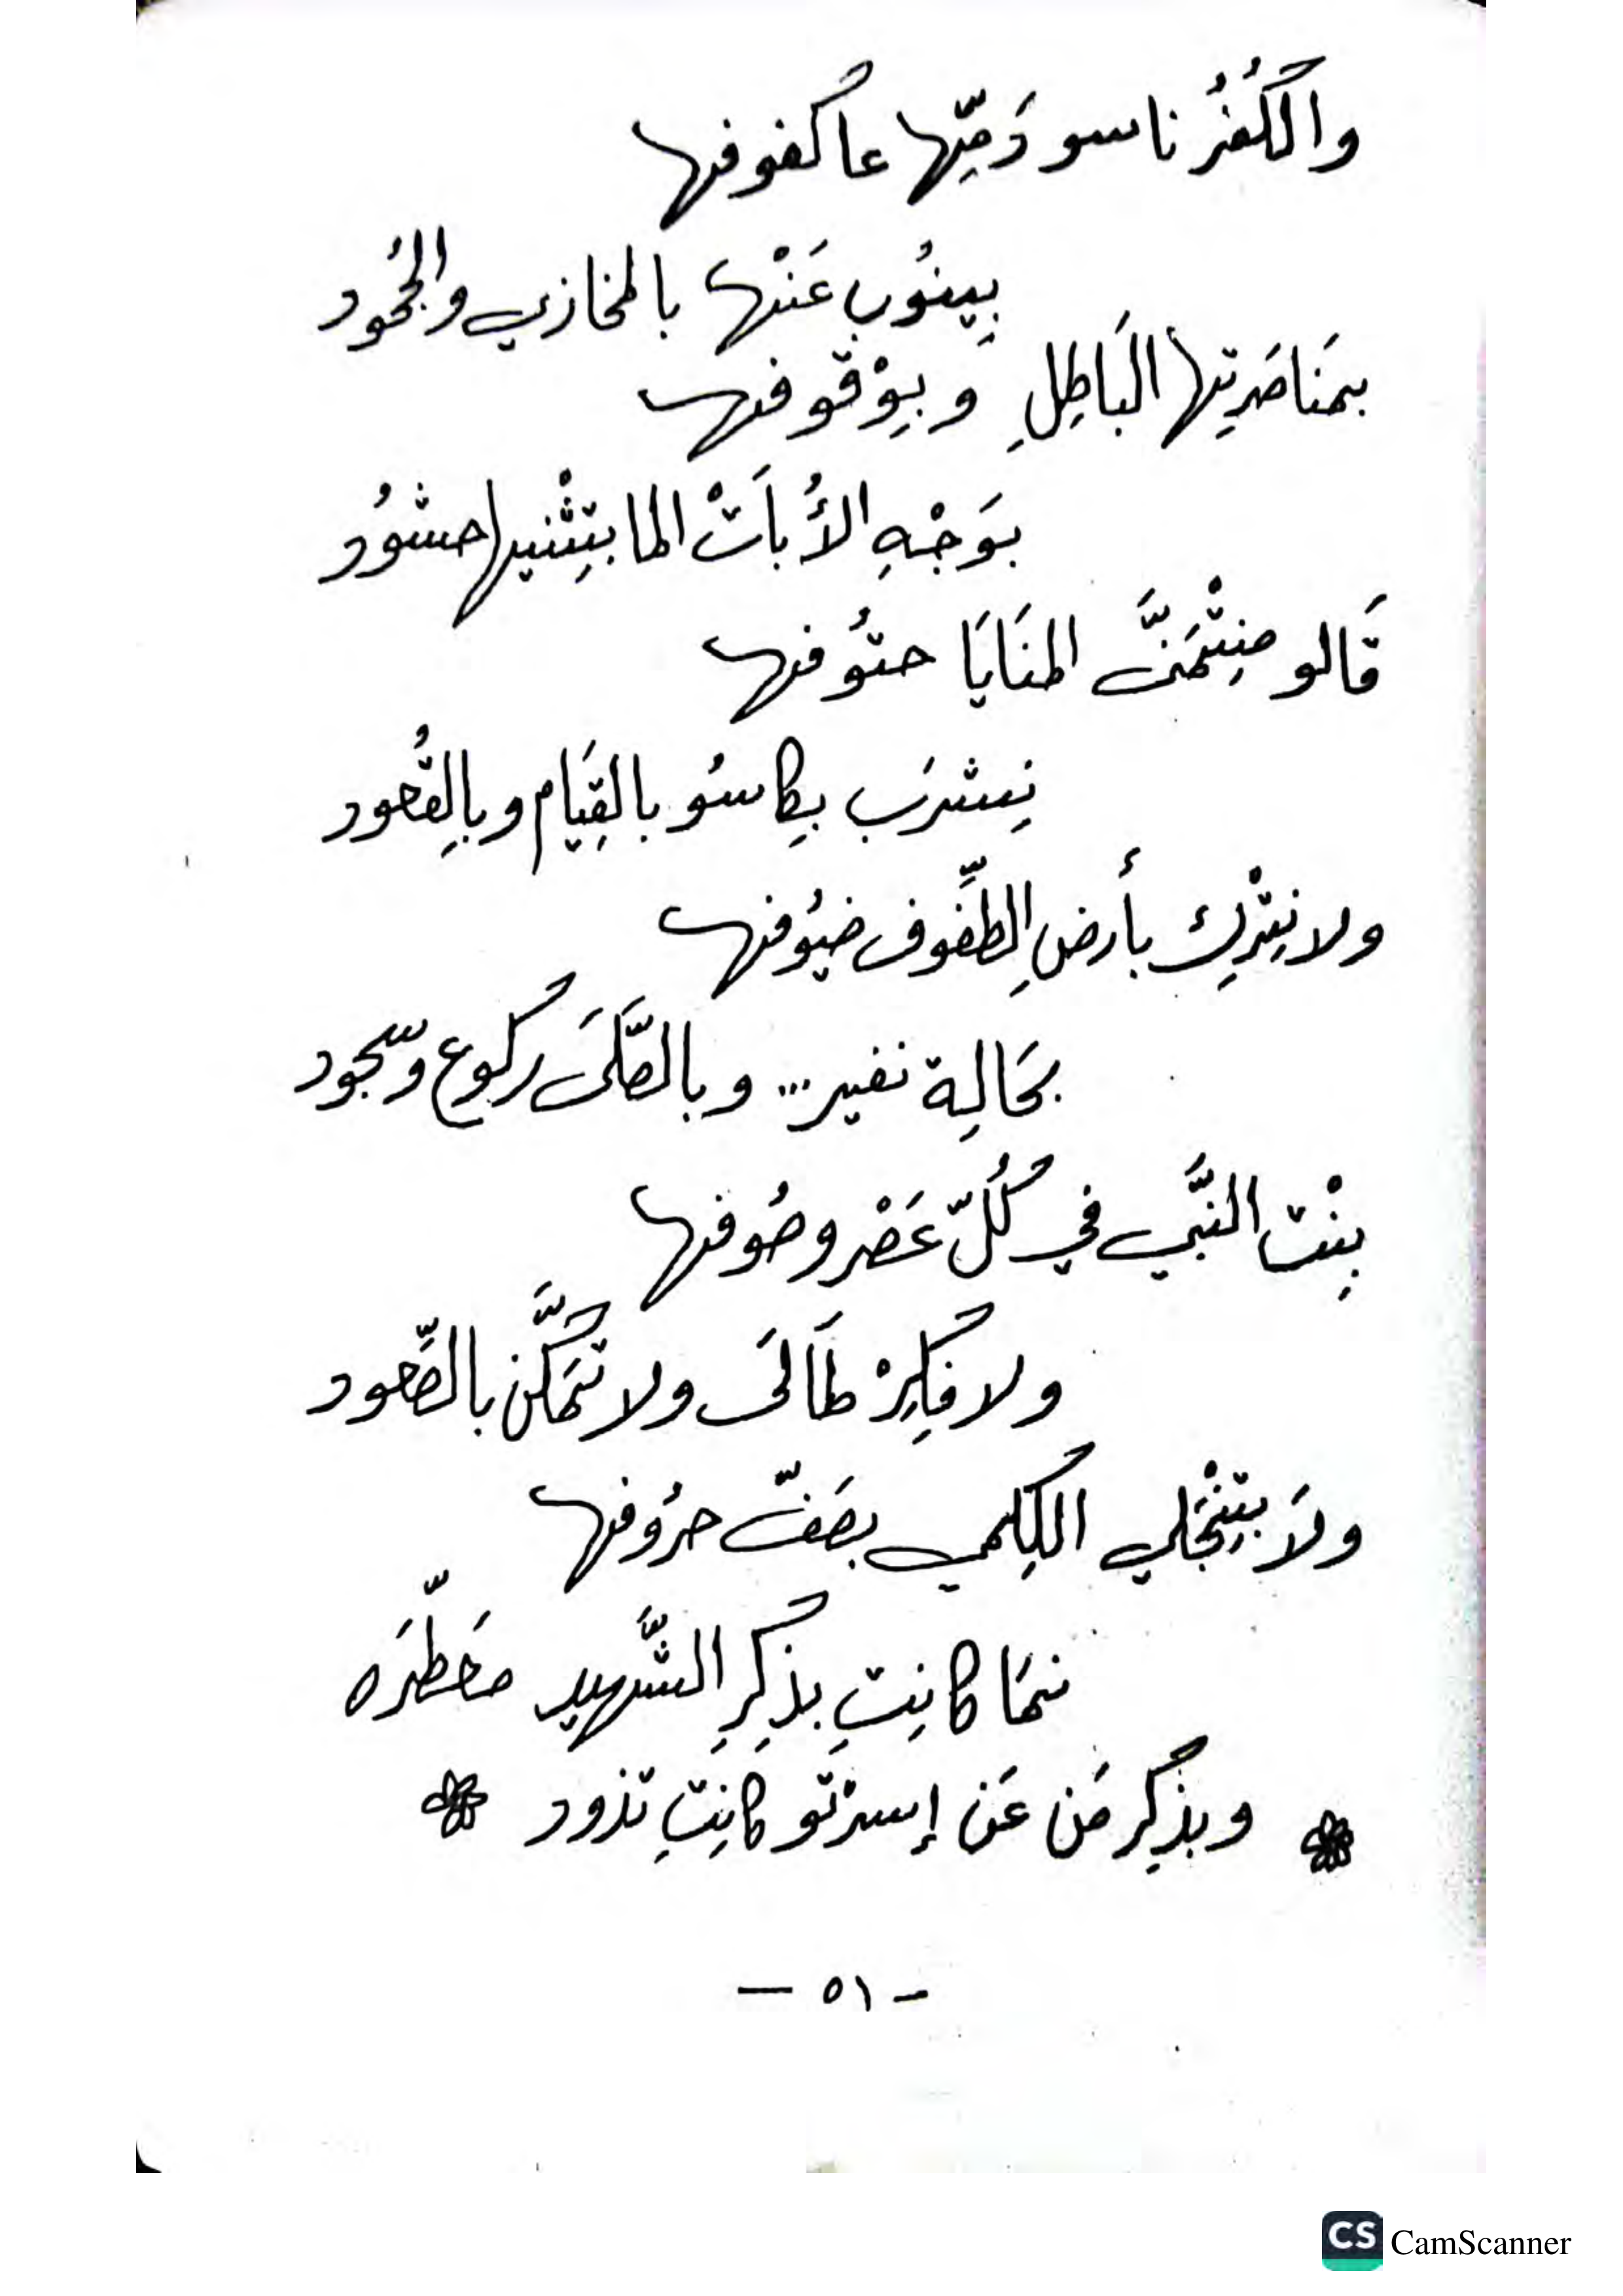 والكُفُرْ ناسو دَمِّها عا كفوفها
بِينُوبِ عَنْها بالمخازي والجُحُود
بمَنَاصَرِتها البَاطِلِ وَبِوْقوفها
بوَجْهِ الأُباتْ الما بتِثْنيها حشُود
قَالو منِتْمَنَّى المنَايَا حتُوفها
نِشرَب بِكاسُو بالقِيَام وبالِقُعود
ولا نِتْرِك بأرضِ الطّفُوف ضيُوفها
بحَالِة نفير... وبالصَّلَى ركُوع وسّجود
بِنْت النَّبي في كُلّ عَصْر وصُوفها
ولا فِكِرْ طَالَى ولا تمَكَّن بالصّعود
ولَا بيِنْجَلي الكِلمي بصَفّ حرُوفها
نمَا كانِتِ بذِكِرِ الشَّهيد معَطّرَه
وبذِكِر مَن عَن إسرْتو كانِتِ تذود
- ٥١ -
CS CamScanner